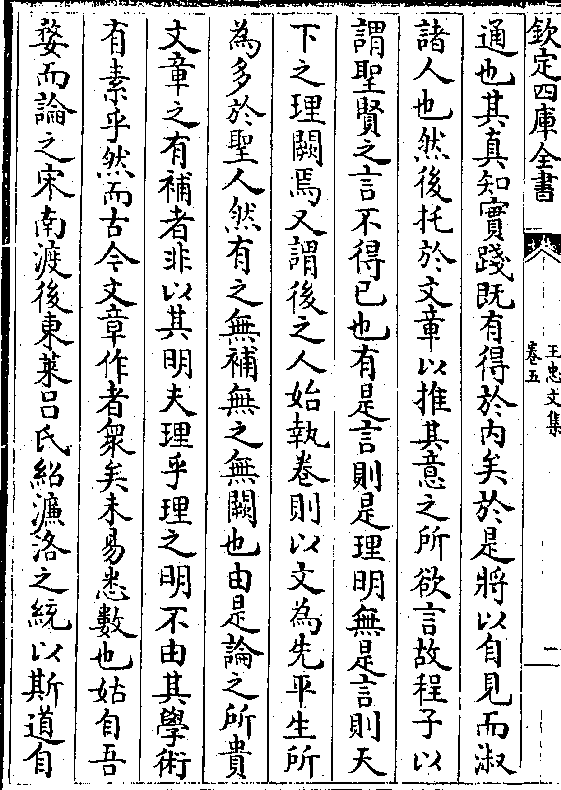 欽定四庫全書
王忠文集
卷五
二
通也其真知實踐既有得於内矣於是將以自見而淑
諸人也然後托於文章以推其意之所欲言故程子以
謂聖賢之言不得已也有是言則是理明無是言則天
下之理闕焉又謂後之人始執卷則以文為先平生所
為多於聖人然有之無補無之無闕也由是論之所貴
文章之有補者非以其明夫理乎理之明不由其學術
有素乎然而古今文章作者衆矣未易悉數也姑自吾
婺而論之宋南渡後東萊吕氏紹濂洛之統以斯道自